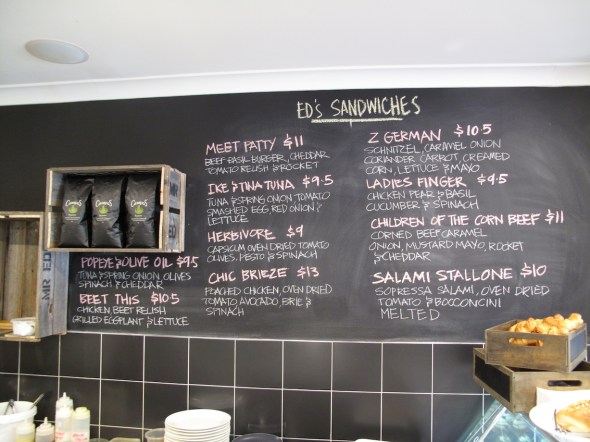 ED'S SANDWICHES
POPEYE & OLIVE OIL $9.5
TUNA & SPRING ONION, OLIVES
SPINACH & CHEDDAR
BEET THIS $10.5
CHICKEN, BEET RELISH
GRILLED EGGPLANT & LETTUCE
MEET PATTY $11
BEEF BASIL BURGER, CHEDDAR
TOMATO RELISH & ROCKET
IKE & TINA TUNA $9.5
TUNA & SPRING ONION TOMATO
SMASHED EGG RED ONION &
LETTUCE
HERBIVORE $9
CAPSICUM OVEN DRIED TOMATO
OLIVES, PESTO & SPINACH
CHIC BRIEZE $13
POACHED CHICKEN, OVEN DRIED
TOMATO AVOCADO, BRIE &
SPINACH
Z GERMAN $10.5
SCHNITZEL, CARAMEL ONION
CORIANDER CARROT, CREAMED
CORN, LETTUCE & MAYO
LADIES FINGER $9.5
CHICKEN PEAR & BASIL
CUCUMBER & SPINACH
CHILDREN OF THE CORN BEEF $11
CORNED BEEF CARAMEL
ONION, MUSTARD MAYO, ROCKET
& CHEDDAR
SALAMI STALLONE $10
SOPRESSA SALAMI, OVEN DRIED
TOMATO & BOCCONCINI
MELTED
MR ED
MR ED